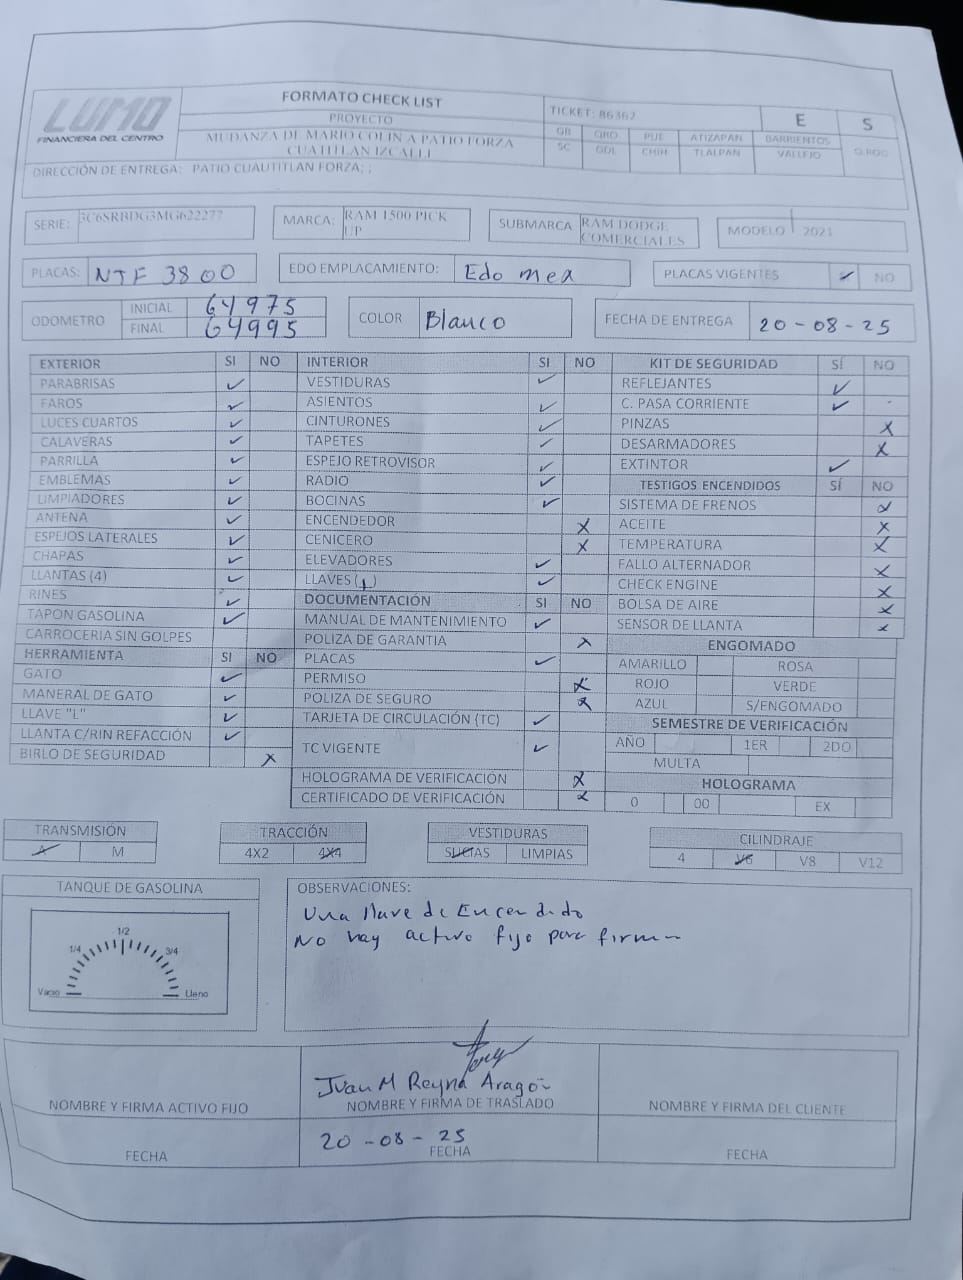 LUMO
FINANCIERA DEL CENTRO
FORMATO CHECK LIST
PROYECTO
MUDANZA DE MARIO COLIN A PATIO FORZA
CUATITLAN IZCALLI
TICKET: 86362
E S
GB QRO PUE ATIZAPAN BARRIENTOS
SC GDL CHIH TLALPAN VALLEJO Q.ROO
DIRECCIÓN DE ENTREGA: PATIO CUAUTITLAN FORZA; ;
SERIE: 3C6SRBDG3MG622277
MARCA: RAM 1500 PICK UP
SUBMARCA RAM DODGE COMERCIALES
MODELO 2021
PLACAS: NTF 3800
EDO EMPLACAMIENTO: Edo mex
PLACAS VIGENTES ✓ NO
ODOMETRO INICIAL 64975
FINAL 64995
COLOR Blanco
FECHA DE ENTREGA 20-08-25
EXTERIOR SI NO
PARABRISAS ✓
FAROS ✓
LUCES CUARTOS ✓
CALAVERAS ✓
PARRILLA ✓
EMBLEMAS ✓
LIMPIADORES ✓
ANTENA ✓
ESPEJOS LATERALES ✓
CHAPAS ✓
LLANTAS (4) ✓
RINES ✓
TAPON GASOLINA ✓
CARROCERIA SIN GOLPES
HERRAMIENTA SI NO
GATO ✓
MANERAL DE GATO ✓
LLAVE "L" ✓
LLANTA C/RIN REFACCIÓN ✓
BIRLO DE SEGURIDAD X
INTERIOR SI NO
VESTIDURAS ✓
ASIENTOS ✓
CINTURONES ✓
TAPETES ✓
ESPEJO RETROVISOR ✓
RADIO ✓
BOCINAS ✓
ENCENDEDOR X
CENICERO X
ELEVADORES ✓
LLAVES (1) ✓
DOCUMENTACIÓN SI NO
MANUAL DE MANTENIMIENTO ✓
POLIZA DE GARANTIA X
PLACAS ✓
PERMISO X
POLIZA DE SEGURO X
TARJETA DE CIRCULACIÓN (TC) ✓
TC VIGENTE ✓
HOLOGRAMA DE VERIFICACIÓN X
CERTIFICADO DE VERIFICACIÓN X
KIT DE SEGURIDAD SÍ NO
REFLEJANTES ✓
C. PASA CORRIENTE ✓
PINZAS X
DESARMADORES X
EXTINTOR ✓
TESTIGOS ENCENDIDOS SÍ NO
SISTEMA DE FRENOS X
ACEITE X
TEMPERATURA X
FALLO ALTERNADOR X
CHECK ENGINE X
BOLSA DE AIRE X
SENSOR DE LLANTA X
ENGOMADO
AMARILLO ROSA
ROJO VERDE
AZUL S/ENGOMADO
SEMESTRE DE VERIFICACIÓN
AÑO 1ER 2DO
MULTA
HOLOGRAMA
0 00 EX
TRANSMISIÓN
A M
TRACCIÓN
4X2 4X4
VESTIDURAS
SUCIAS LIMPIAS
CILINDRAJE
4 V6 V8 V12
TANQUE DE GASOLINA
1/2
1/4 3/4
Vacio Lleno
OBSERVACIONES:
Una llave de Encendido
No hay activo fijo para firma
NOMBRE Y FIRMA ACTIVO FIJO
Juan M Reyna Aragón
NOMBRE Y FIRMA DE TRASLADO
NOMBRE Y FIRMA DEL CLIENTE
FECHA
20-08-25
FECHA
FECHA